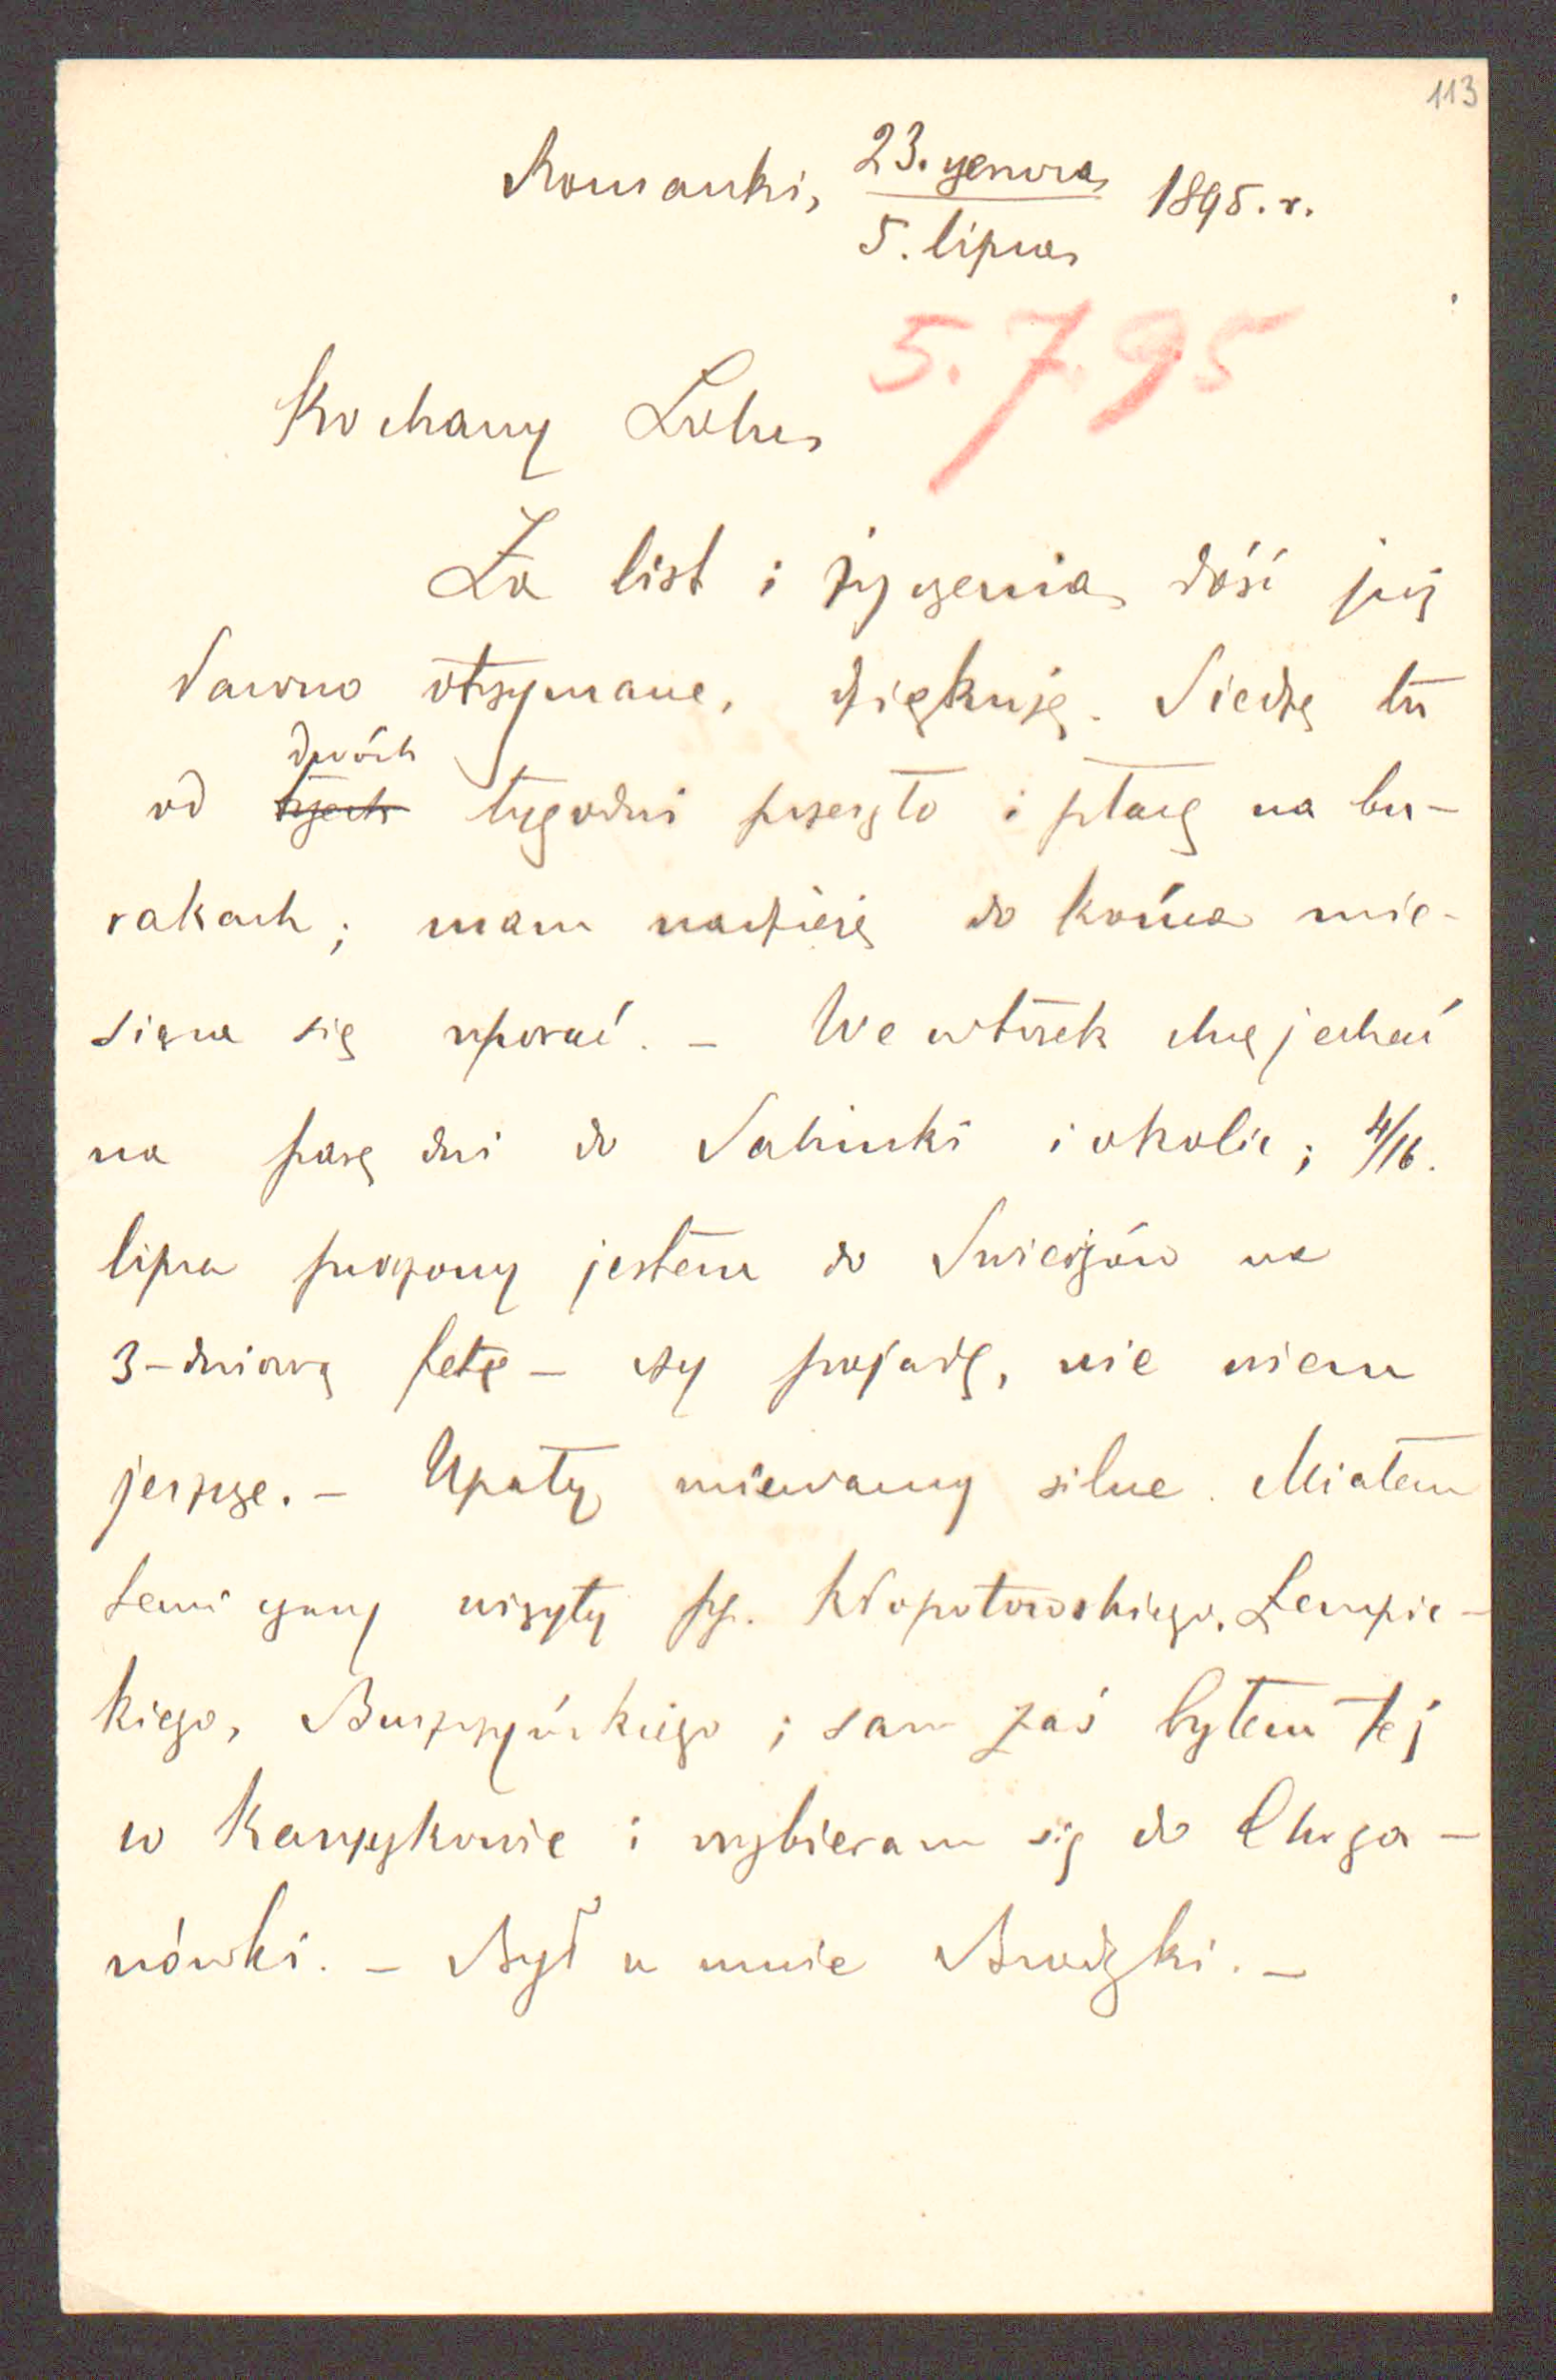 113
Romanki, 23. czerwca 1895. r.
5. lipca
5.7.95
Kochany Lolu,
Za list i życzenia dość już
dawno otrzymane, dziękuję. Siedzę tu
dwóch
od trzech tygodni przeszło i płacę na bu-
rakach; mam nadzieję do końca mie-
siąca się uporać. – We wtorek chcę jechać
na parę dni do Sahinki i okolic; 4/16.
lipca proszony jestem do na
3-dniową fetę – czy pojadę, nie wiem
jeszcze. – Upały miewamy silne. Miałem
temi czasy wizyty pp. Kłopotowskiego, Łempic-
kiego, Buszczyńskiego; sam zaś byłem też
w i wybieram się do
nówki. – Był u mnie Brodzki. –